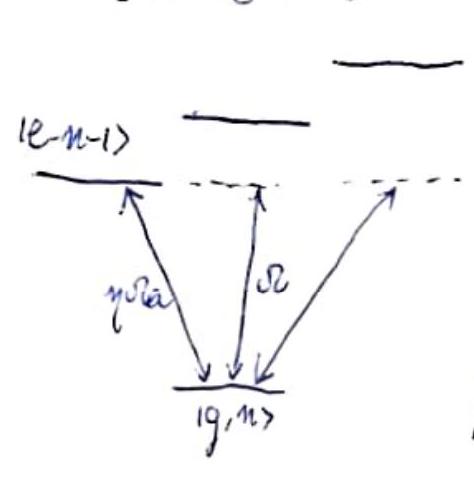 |e-n-1>
ηΩa
Ω
|g,n>